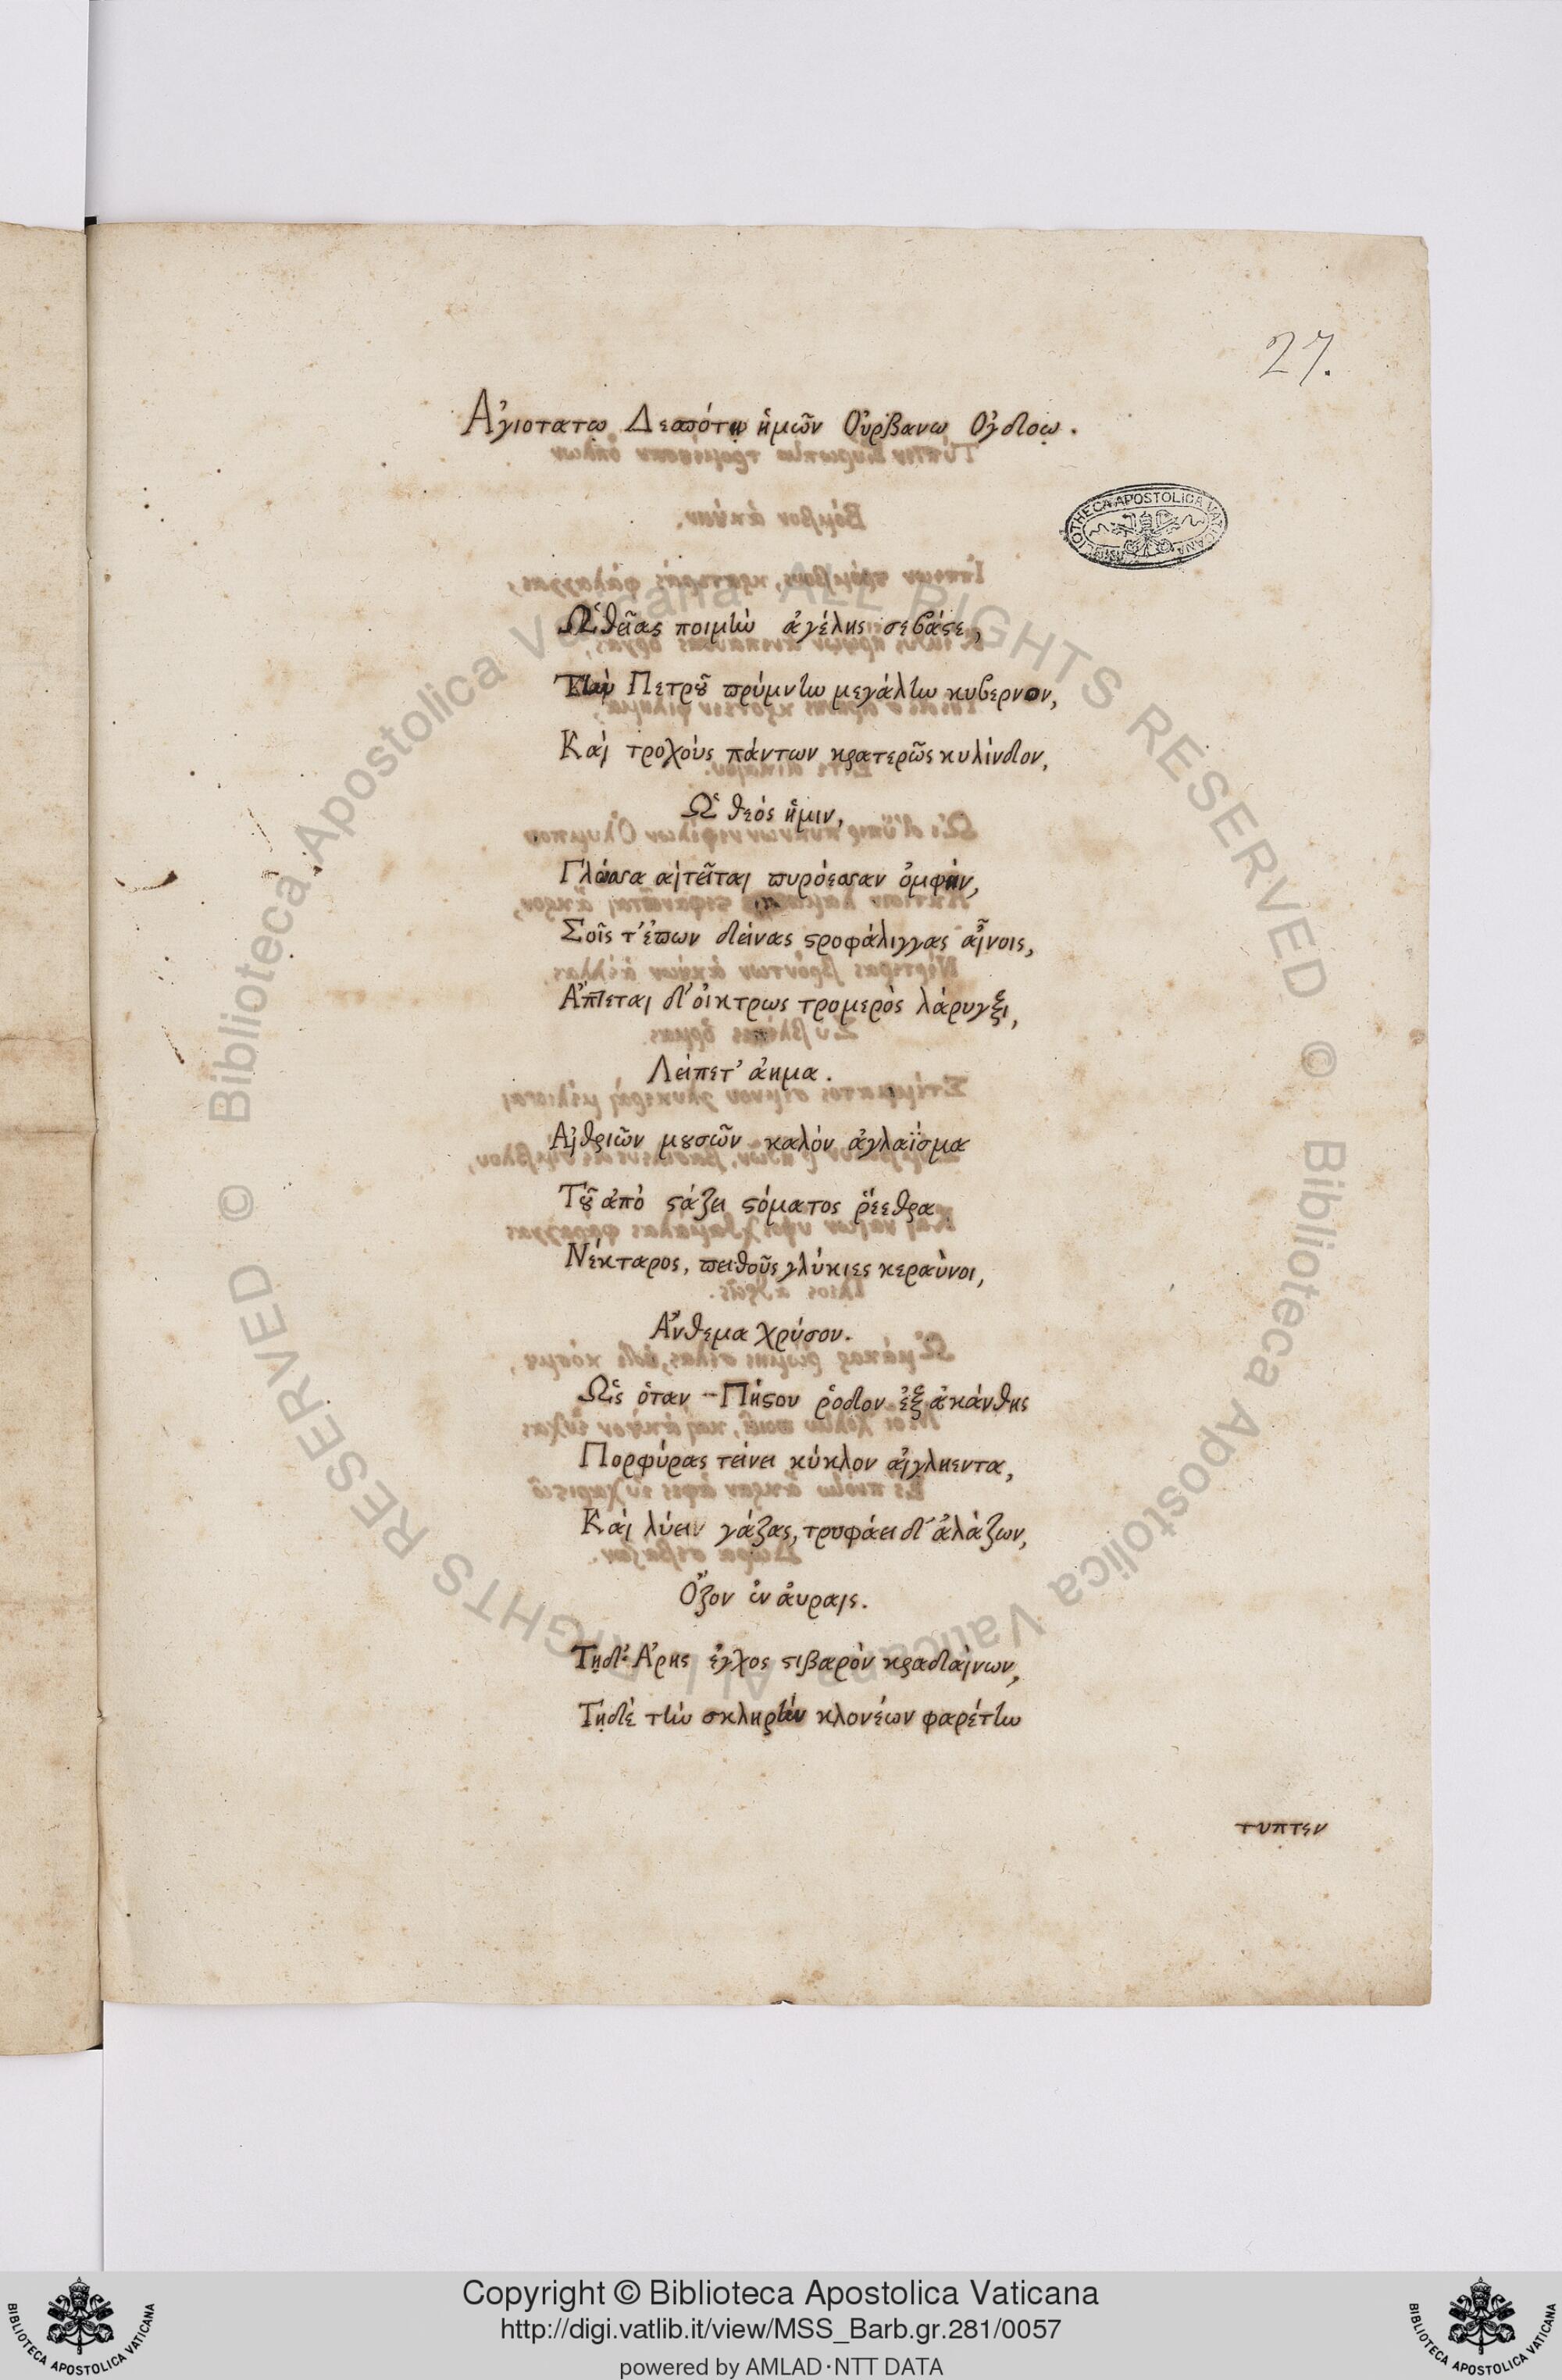 27.
Ἁγιοτατῳ Δεσπότῃ ἡμῶν Οὐρβανω Ογδοῳ.
BIBLIOTHECA APOSTOLICA VATICANA
Ὦ θεῖας ποιμὴν ἀγέλης σεβάϛε,
Τὴν Πετροῦ πρύμνην μεγάλην κυβερνον,
Καὶ τροχοὺς πάντων κρατερῶς κυλίνδον,
Ὦ θεός ἡμιν,
Γλώσσα αἰτεῖται πυρόεσσαν ὀμφήν,
Σοῖς τ' ἐπων δείνας ϛροφάλιγγας αἴνοις,
Ἅπτεται δ' οἰκτρως τρομερὸς λάρυγξι,
Λείπετ' ἀημα.
Αἰθριῶν μουσῶν καλόν ἀγλαΐσμα
Τοῦ ἀπὸ ϛάζει ϛόματος ῥέεθρα
Νέκταρος, πειθοῦς γλύκιες κεραὺνοι,
Ἄνθεμα χρύσου.
Ὡς ὅταν Πήϛου ῥοδον ἐξ ἀκάνθης
Πορφύρας τείνει κύκλον αἰγληεντα,
Καὶ λύειν γάζας, τρυφάει δ' ἀλάζων,
Ὄζον ἐν ἀυραις.
Τῃδ' Ἄρης ἔγχος ϛιβαρὸν κραδαίνων,
Τῃδὲ τὴν σκληρὴν κλονέων φαρέτην
τυπτεν
Copyright © Biblioteca Apostolica Vaticana
http://digi.vatlib.it/view/MSS_Barb.gr.281/0057
powered by AMLAD·NTT DATA
BIBLIOTECA APOSTOLICA VATICANA
BIBLIOTECA APOSTOLICA VATICANA
© Biblioteca Apostolica Vaticana ALL RIGHTS RESERVED © Biblioteca Apostolica Vaticana ALL RIGHTS RESERVED